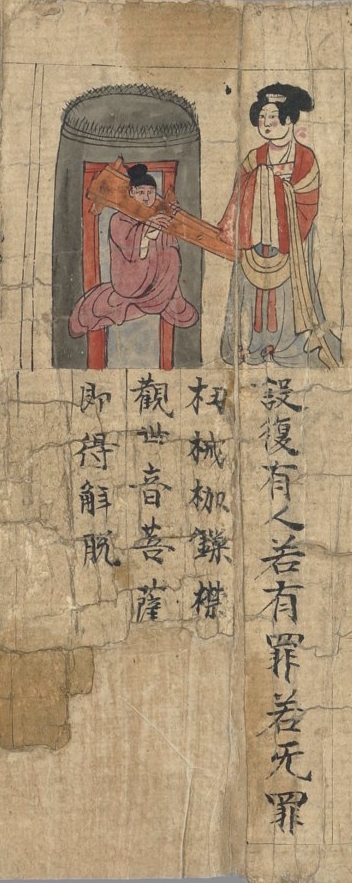 設復有人若有罪若无罪
杻械枷鏁
觀世音菩薩
即得觧脫